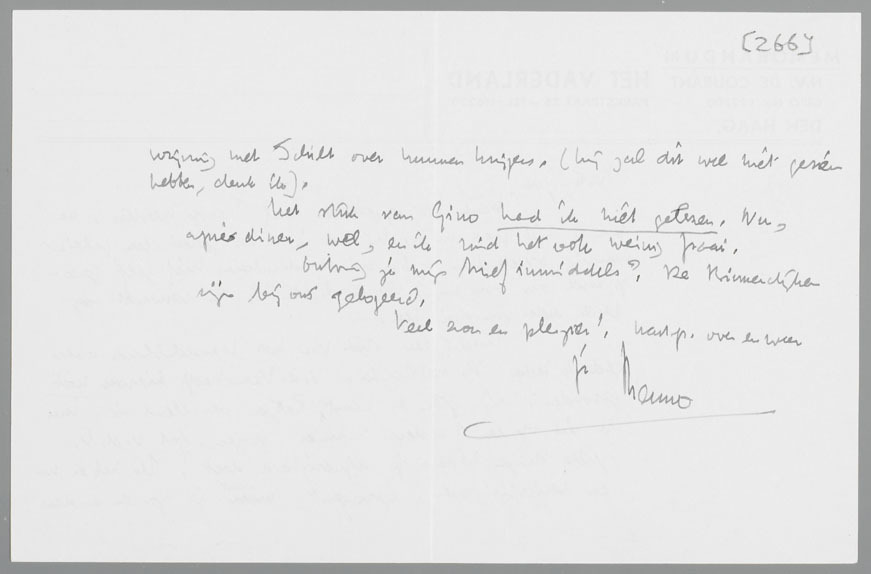 [266]
met Schilt over . (hij zal dit wel niét gezien
hebben, denk ik).
Het stuk van Gino had ik niét gelezen. Nu,
après diner, wel, en ik vind het ook weinig fraai.
Ontving je mijn brief inmiddels? De Binnendijken
zijn bij ons gelogeerd.
Veel zon en plezier! hart.gr. over en weer
je Menno